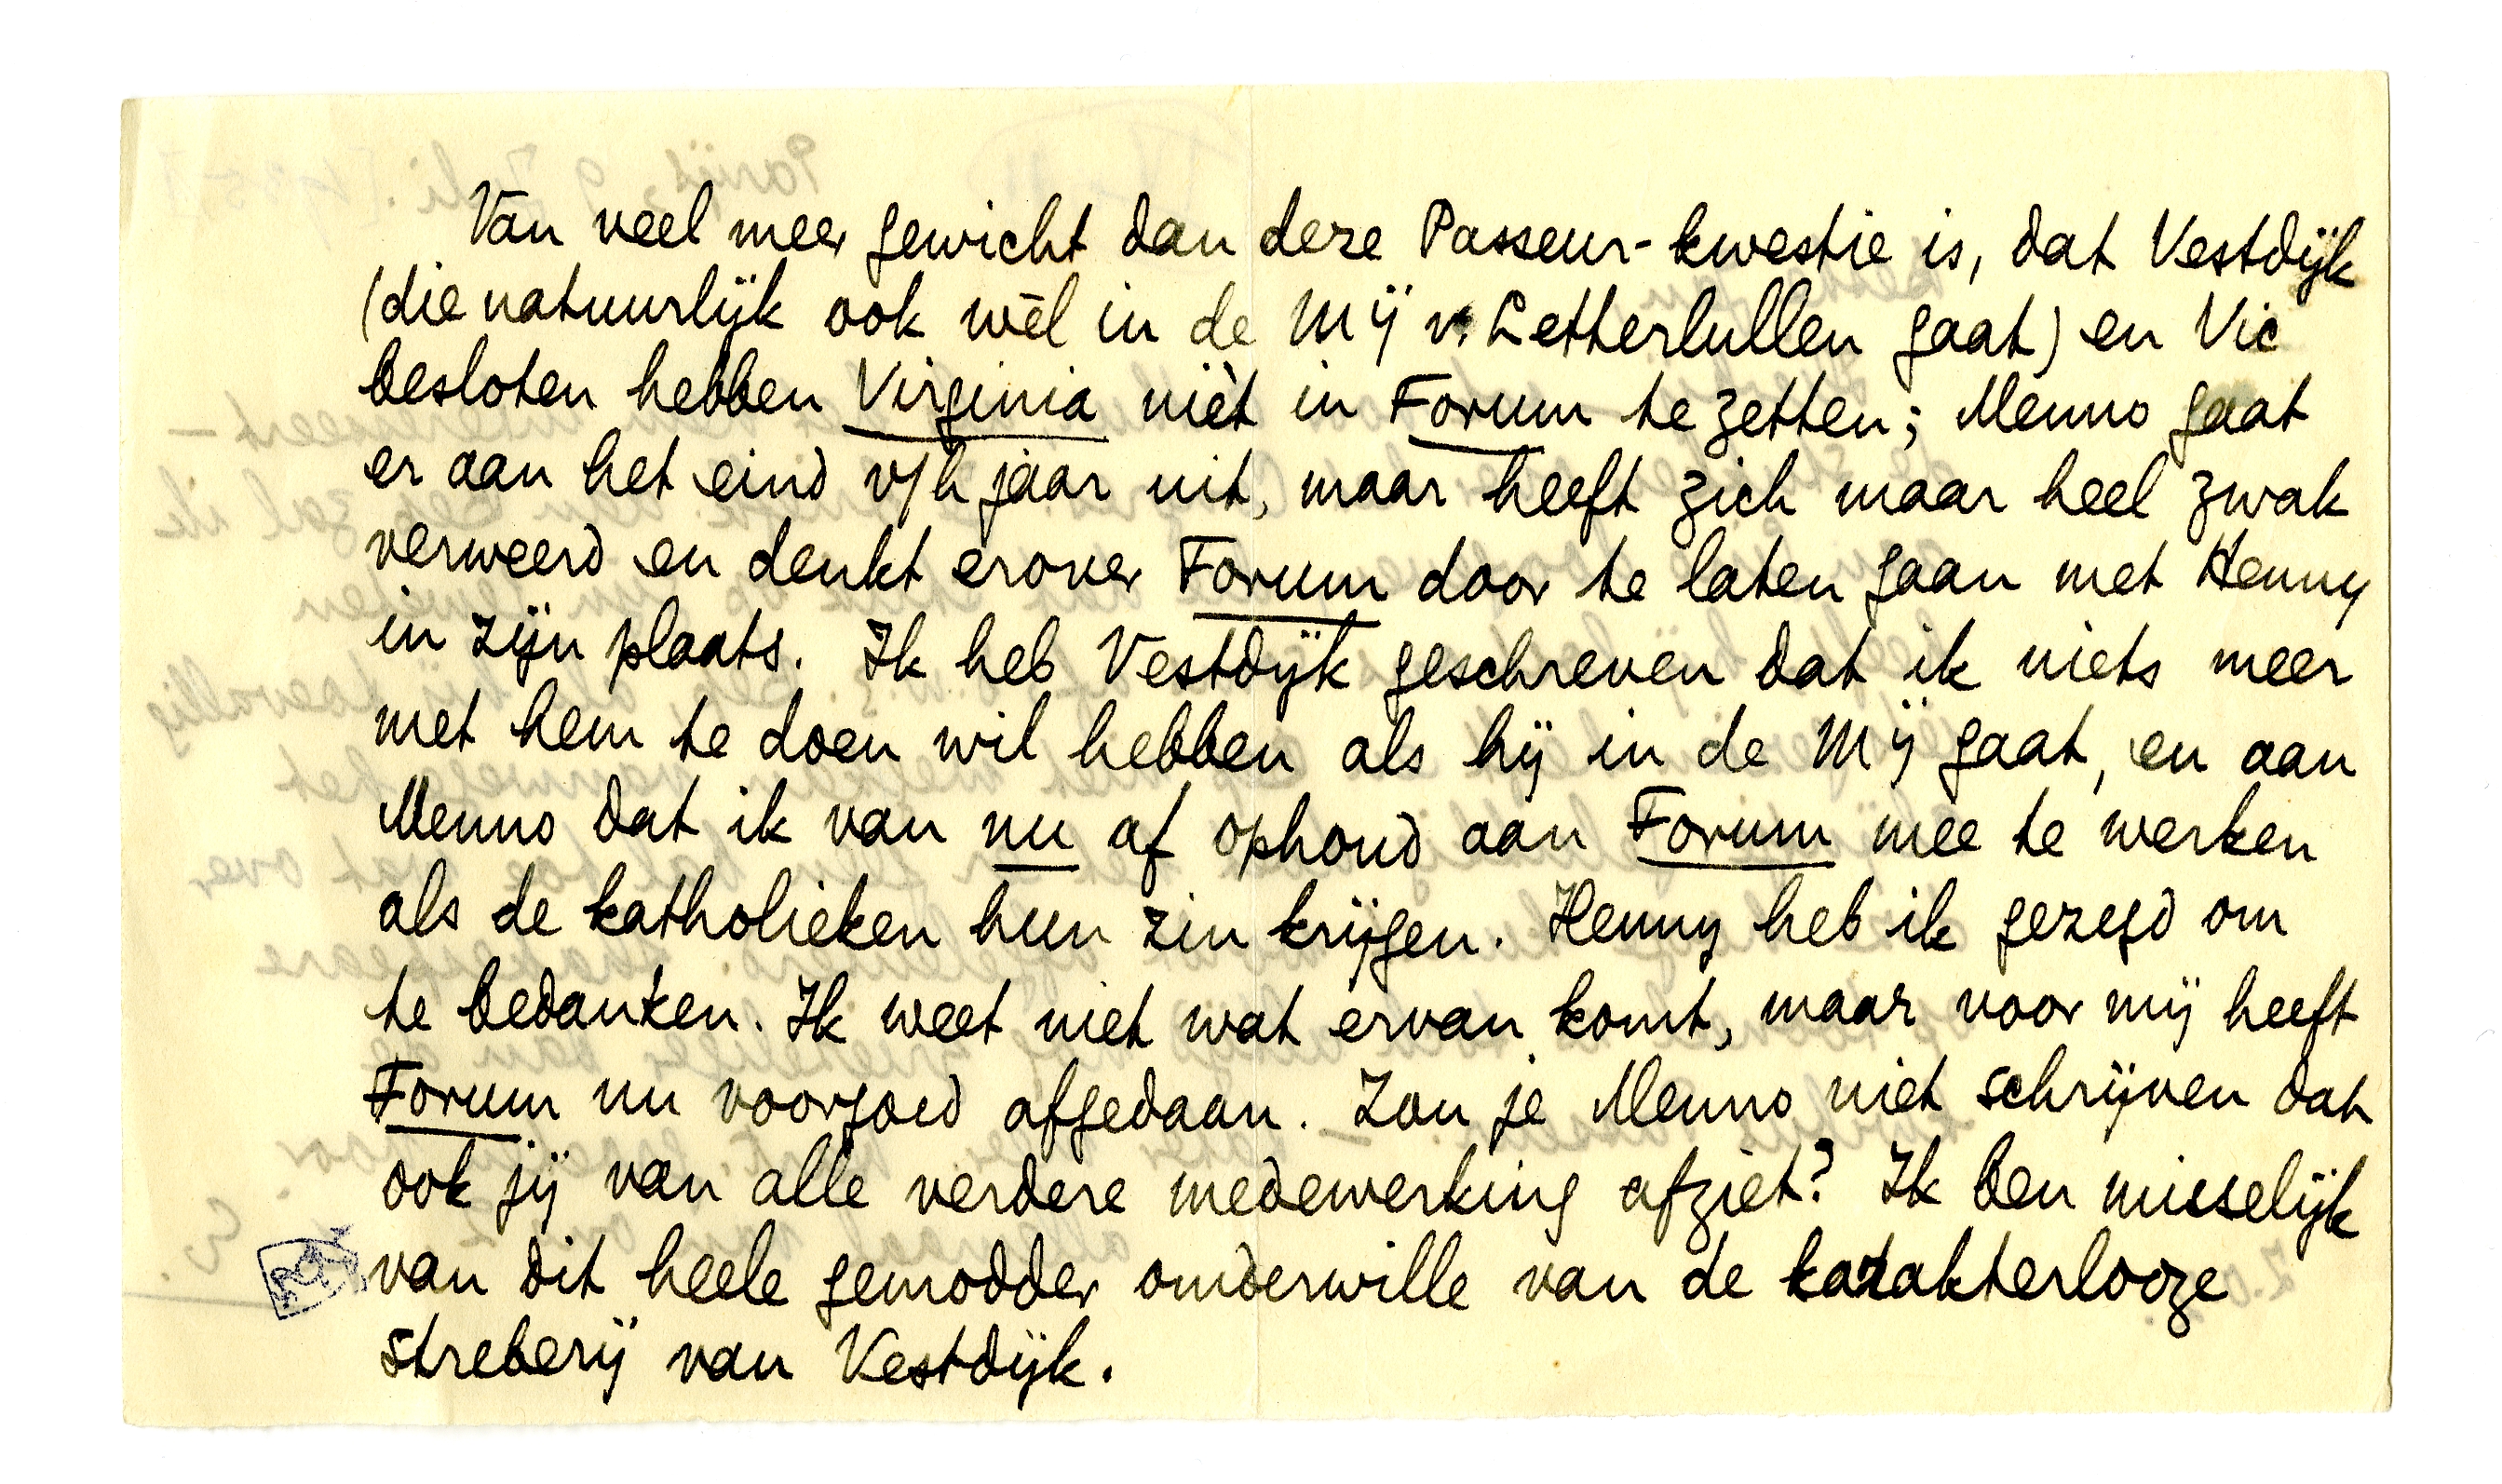 Van veel meer gewicht dan deze Passeur-kwestie is, dat Vestdijk
(die natuurlijk ook wèl in de Mij v. Letterlullen gaat) en Vic
besloten hebben Virginia niet in Forum te zetten; Menno gaat
er aan het eind v/h jaar uit, maar heeft zich maar heel zwak
verweerd en denkt erover Forum door te laten gaan met Henny
in zijn plaats. Ik heb Vestdijk geschreven dat ik niets meer
met hem te doen wil hebben als hij in de Mij gaat, en aan
Menno dat ik van nu af ophoud aan Forum mee te werken
als de katholieken hun zin krijgen. Henny heb ik gezegd om
te bedanken. Ik weet niet wat ervan komt, maar voor mij heeft
Forum nu voorgoed afgedaan. Zou je Menno niet schrijven dat
ook jij van alle verdere medewerking afziet? Ik ben misselijk
van dit heele gemodder omderwille van de karakterlooze
streberij van Vestdijk.